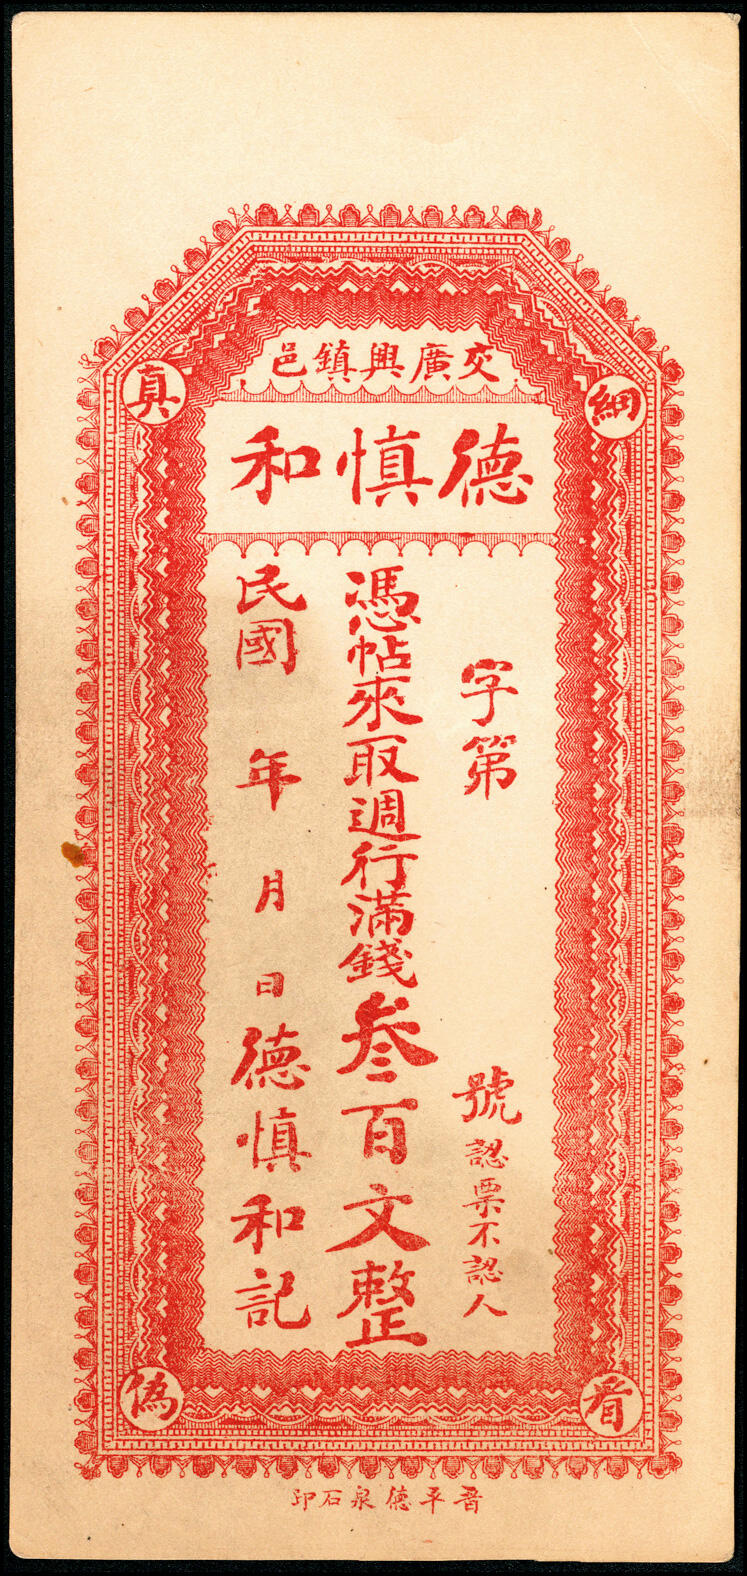 交廣興鎮邑
德慎和
字第 號 認票不認人
憑帖來取週行滿錢叁百文整
民國 年 月 日 德慎和記
細
看
真
偽
晋平德泉石印